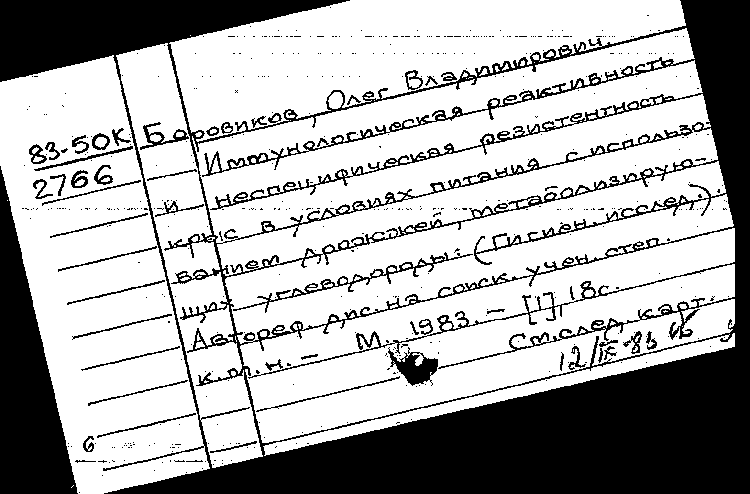 83-50К Боровиков, Олег Владимирович.
2766 Иммунологическая реактивность
и неспецифическая резистентность
крыс в условиях питания с использо-
ванием дрожжей, метаболизирую-
щих углеводороды: (Гигиен. исслед.).
Автореф. дис. на соиск. учен. степ.
к.м.н. – М., 1983. – [1], 18с.
См. след. карт.
12/IX-83
6